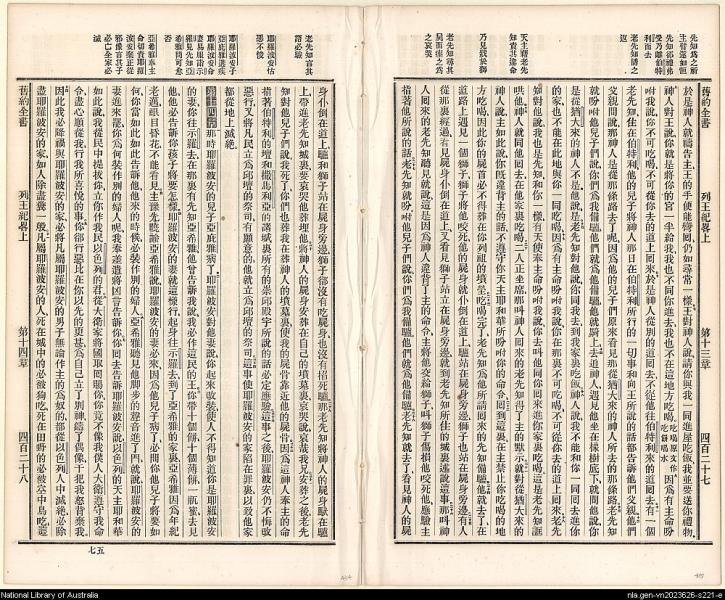 先知為之所
主醫還如恒
先知卻禮弗
受乃離伯特
利而去
老先知請之
返
天主藉老先
知責其違命
乃見殺於獅
老先知尋其
屍而葬之為
之哀哭
舊約全書
列王紀畧上
第十三章
四百二十七
於是神人就禱告主王的手便能彎屈仍如尋常一樣王對神人說請你與我一同進屋吃飯我並要送你禮物
神人對王說你就是將你的宮一半給我我也不同你進去我也不在這地方吃喝因為有主命吩
咐我說你不可吃喝不可從你去的道上回來於是神人從別的道回去不從他往伯特利來的道回去有一個
老先知住在伯特利他的兒子將神人那日在伯特利所行的一切事和向王所說的話都告訴他們父親他們
父親問說那神人是從那條路去了呢因為他的兒子們原來看見那從猶大來的神人所去的那條路老先知
就吩咐兒子們說你們為我備驢他們就為他備驢他就騎上去追神人遇見他坐在橡樹底下就問他說你
是從猶大來的神人不是他說是老先知對他說你同我去到我家裏吃飯神人說我不能和你一同回去進你
的家也不能在此地與你一同吃喝因為有主命吩咐我說你在那裏不可吃喝不可從你去的道上回來老先
知對他說我也是先知和你一樣有天使奉主命吩咐我說你去叫他同你回來進你家裏吃喝這是老先知誆
哄他神人就同他回去在他家裏吃喝二人正坐席那叫神人回來的先知得了主的默示就對從猶大來的
神人說主如此說你既違背主的話不遵守你天主耶和華的命令回到這裏在主禁止你吃喝的地
方吃喝因此你的屍首必不得葬在你列祖的墳塋吃喝完了老先知為他所請回來的先知備驢他就去了在
道路上遇見一個獅子獅子將他咬死他的屍身就仆倒在道上驢站在屍身旁邊獅子也站在屍身旁邊有人
從那裏經過看見屍身仆倒在道上又看見獅子站立在屍身旁邊就到老先知所住的城裏述說這事那叫神
人回來的老先知聽見就說這是因為神人違背了主的命令主將他交給獅子叫獅子傷損他咬死他應驗主
指著他所說的話老先知就吩咐他兒子們說你們為我備驢他們就為他備驢老先知就去了看見神人的屍
老先知言其
語必驗
耶羅波安怙
惡不悛
耶羅波安子
亞庇雅遘疾
妻易服微行示
羅見先知亞
希雅問可愈
否
亞希雅奉主
命切責耶羅
波安棄正從
邪豫言其子
必亡全家必
滅
舊約全書
列王紀畧上
第十四章
四百二十八
身仆倒在道上驢和獅子站在屍身旁邊獅子卻沒有吃屍身也沒有損死驢那老先知將神人的屍身馱在驢
上帶進老先知城裏要哀哭他葬埋他將神人的屍身安葬在自己的墳墓裏哀哭說哀哉我兄安葬之後老先
知對他兒子們說我死了你們也葬我在葬神人的墳墓裏使我的屍骨靠近他的屍骨因為這神人奉主的命
指著伯特利的壇和撒馬利亞的諸城裏所有的崇邱殿宇所說的話必定應驗這事之後耶羅波安仍不悔改
惡行又將凡民立為邱壇的祭司有願意的他就立為邱壇的祭司這事使耶羅波安的家陷在罪裏以致他家
都從地上滅絕
那時耶羅波安的兒子亞庇雅病了耶羅波安對他妻說你起來改裝使人不得知道你是耶羅波安
的妻你往示羅去在那裏有先知亞希雅他曾告訴我說我必作這民的王你帶十個餅十個薄餅一瓶蜜去見
他他必告訴你孩子將要怎樣耶羅波安的妻就這樣行起身往示羅去到了亞希雅的家裏亞希雅因為年紀
老邁眼目昏花不能看見主豫先曉諭亞希雅說耶羅波安的妻必來因為他兒子病了必問你他兒子將要如
何你當如此如此告訴他他來的時候必裝作別的婦人亞希雅聽見他腳步的聲音進了門就說耶羅波安的
妻進來罷你為何裝作別的婦人呢我奉差遣將凶音告訴你你回去告訴耶羅波安說以色列的天主耶和華
如此說我從民中提拔你立你作我民以色列的君從大衛家將國取回賜你你竟不像我僕人大衛遵守我命
令盡心順從我行我所喜悅的事你卻行惡比在你以先的更甚為自己立了別神鑄了偶像干犯我怒背棄我
因此我必降禍與耶羅波安的家必將凡屬耶羅波安的男子無論作主的為奴的都從以色列人中滅絕必除
盡耶羅波安的家如人除盡糞一般凡屬耶羅波安的人死在城中的必被狗吃死在田野的必被空中鳥吃這
五七
National Library of Australia
nla.gen-vn2023626-s221-e